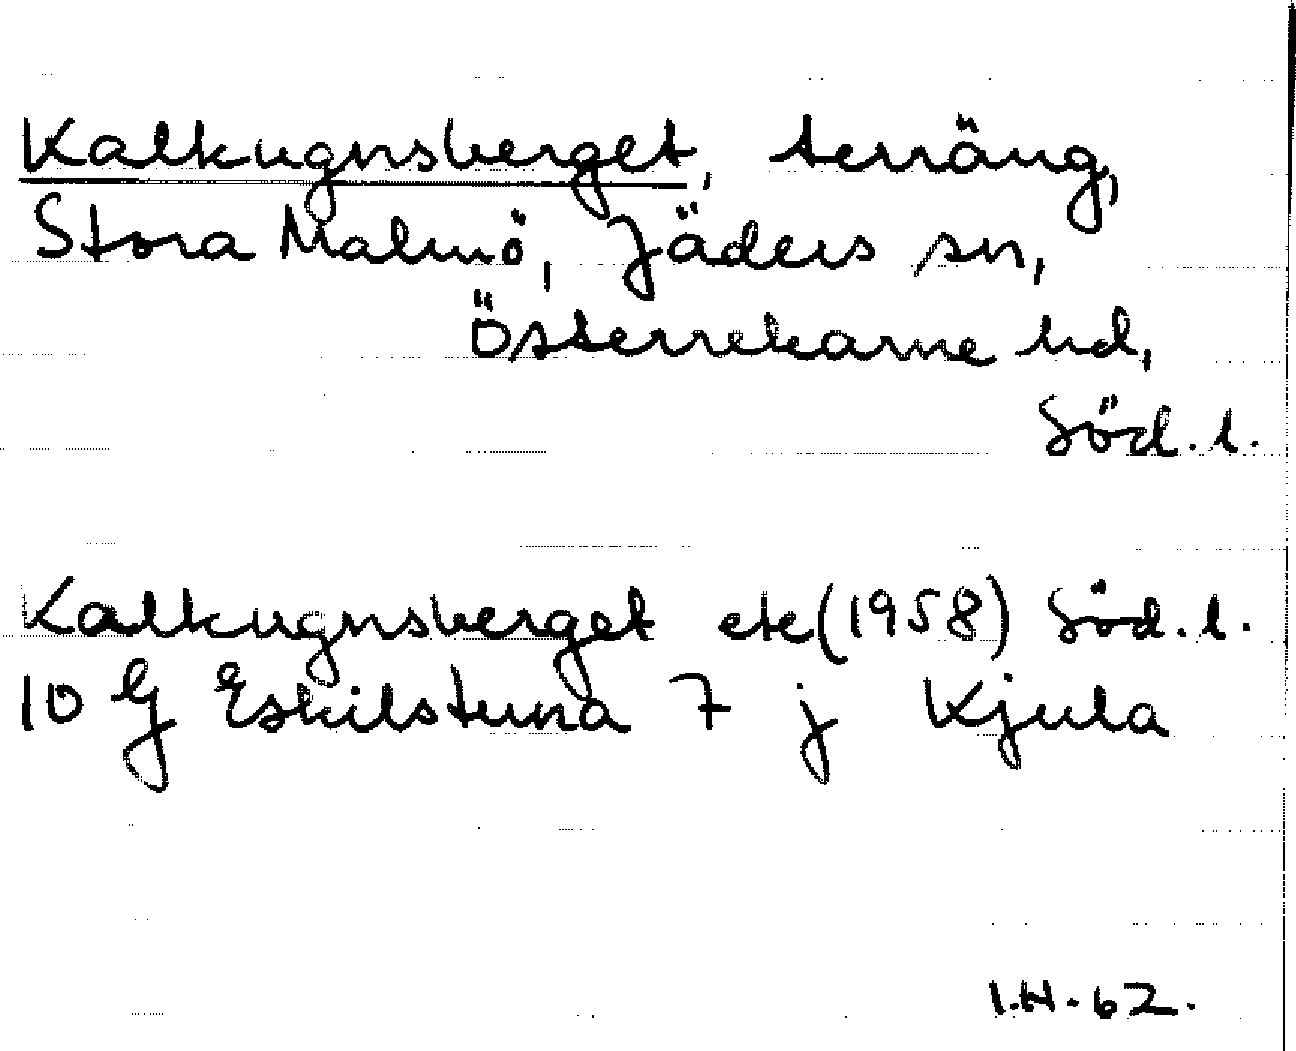 Kalkugnsberget, terräng,
Stora Malmö, Jäders sn,
Österrekarne hd,
Söd. l.
Kalkugnsberget etc (1958) Söd. l.
10 G Eskilstuna 7 j Kjula
I.H. 62.